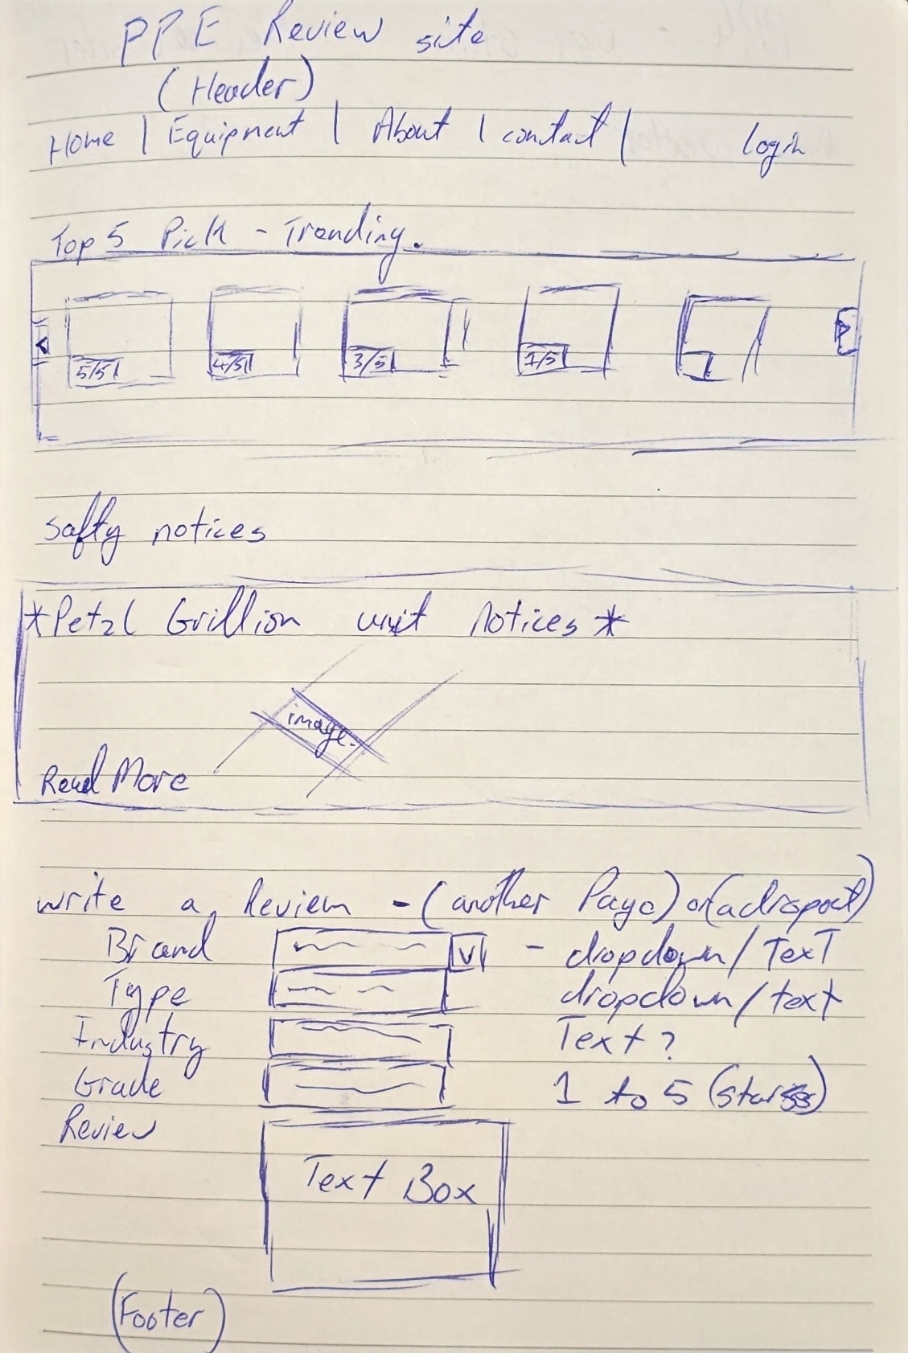 PPE Review site
(Header)
Home | Equipment | About | contact | login
Top 5 Pick - Trending.
< >
5/5 4/5 3/5 1/5
Safty notices
*Petzl Grillion unit notices*
image.
Read More
write a Review - (another Page) or (a dropout)
Brand V - dropdown/TexT
Type dropdown/text
Industry Text?
Grade 1 to 5 (stars)
Review
Text Box
(Footer)